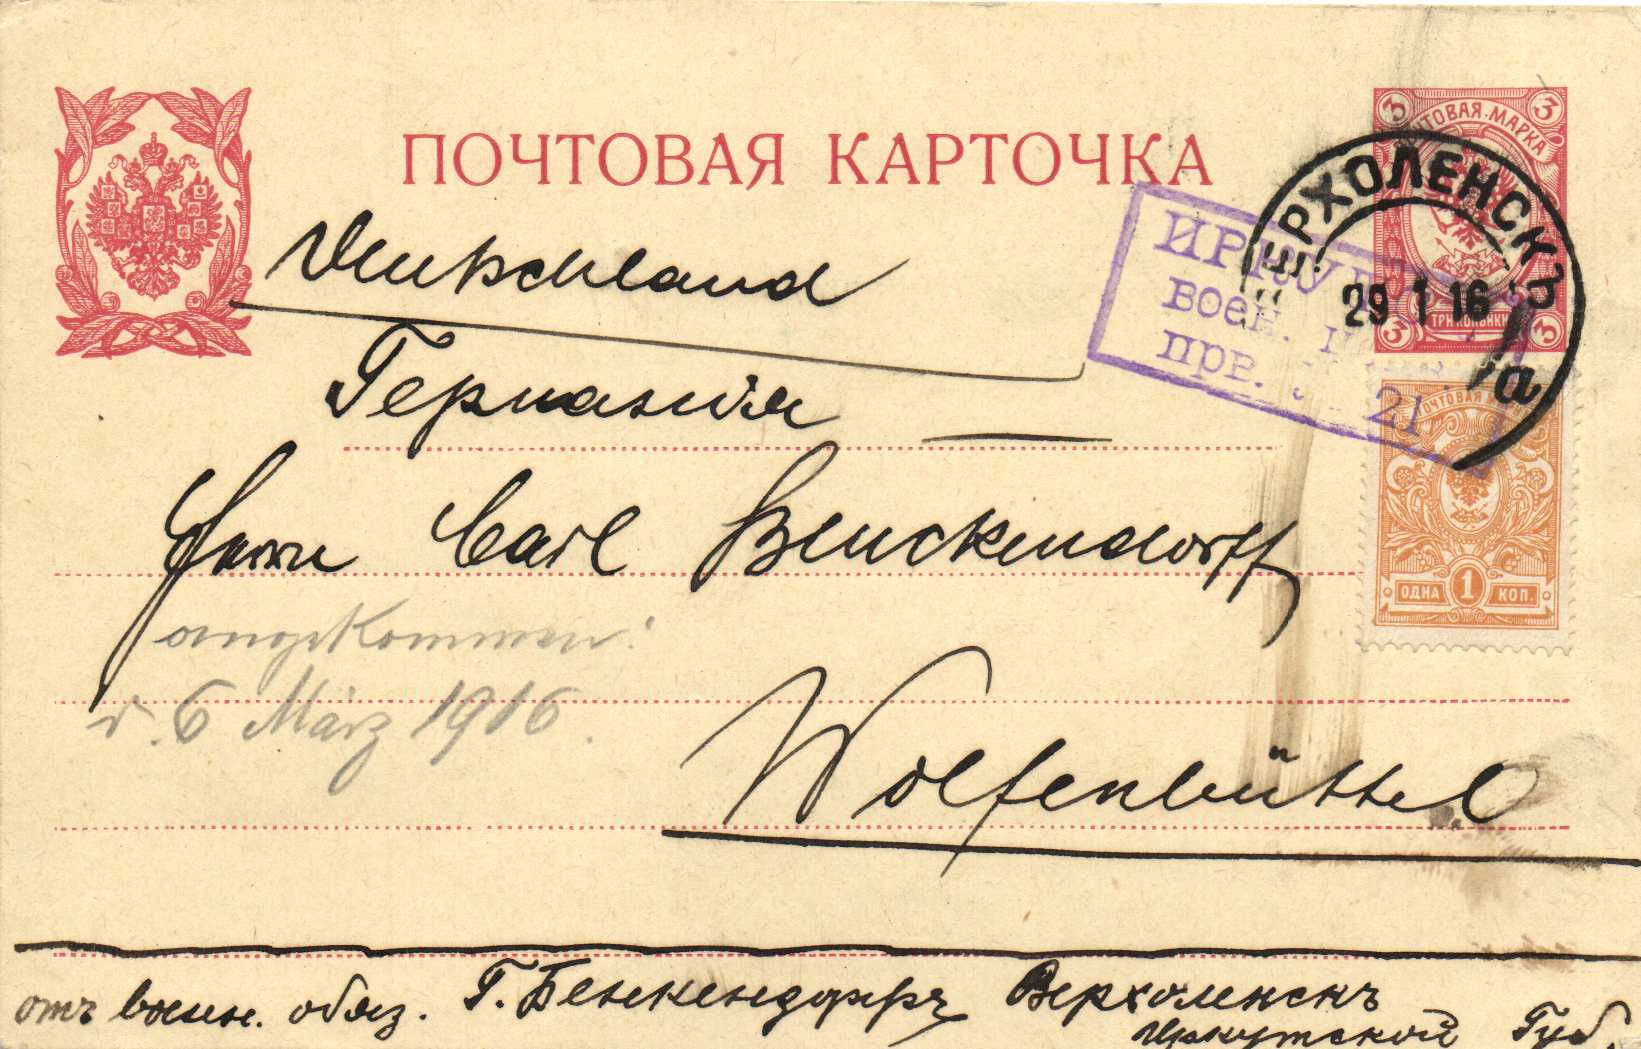 ПОЧТОВАЯ КАРТОЧКА
3 3
ПОЧТОВАЯ МАРКА
ВЕРХОЛЕНСКЪ
29 1 16
а
3 ТРИ КОПѢЙКИ 3
ИРКУТСК
воен.
прв. 21
Deutschland
Германія
Herrn Carl Benckendorff
ПОЧТОВАЯ МАРКА
ОДНА 1 КОП.
angekommen:
d. 6 März 1916.
Wolfenbüttel
отъ воен. обяз. Г. Бенкендорфъ Верхоленскъ
Иркутской Губ.